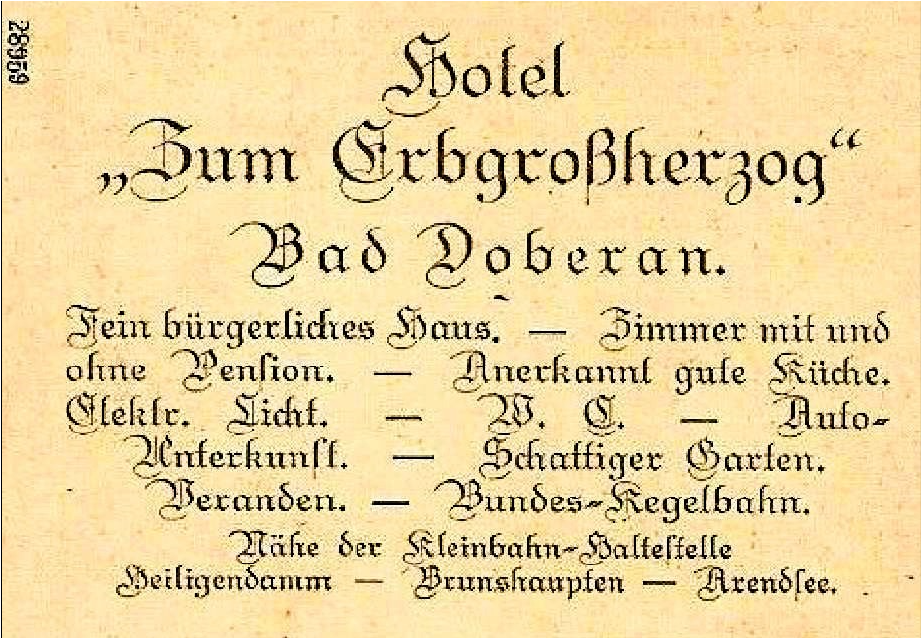 28959
Hotel
„Zum Erbgroßherzog“
Bad Doberan.
Fein bürgerliches Haus. — Zimmer mit und
ohne Pension. — Anerkannt gute Küche.
Elektr. Licht. — W. C. — Auto-
Unterkunft. — Schattiger Garten.
Veranden. — Bundes-Kegelbahn.
Nähe der Kleinbahn-Haltestelle
Heiligendamm — Brunshaupten — Arendsee.